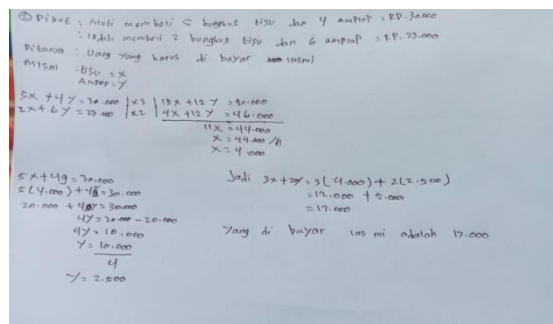 ① Diket : Muti membeli 5 bungkus tisu dan 4 amplop = RP. 30.000
: Indah membeli 2 bungkus tisu dan 6 amplop = RP. 23.000
Ditanya : Uang yang harus di bayar lasmi
Misal : tisu = x
Amplop = y
5x + 4y = 30.000 | x3 | 15x + 12y = 90.000
2x + 6y = 23.000 | x2 | 4x + 12y = 46.000
11x = 44.000
x = 44.000 / 11
x = 4.000
5x + 4y = 30.000
5(4.000) + 4y = 30.000
20.000 + 4y = 30.000
4y = 30.000 - 20.000
4y = 10.000
y = 10.000
4
y = 2.500
Jadi 3x + 2y = 3(4.000) + 2(2.500)
= 12.000 + 5.000
= 17.000
Yang di bayar las mi adalah 17.000